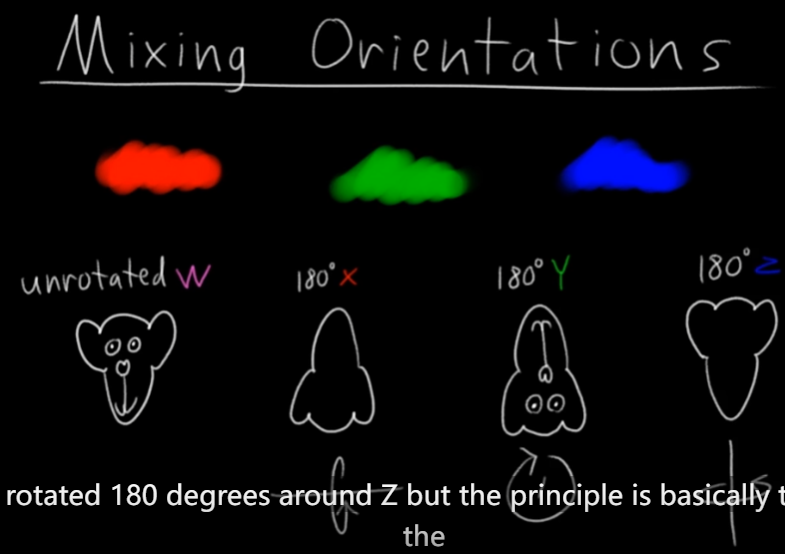 Mixing Orientations
unrotated W 180° X 180° Y 180° Z
rotated 180 degrees around Z but the principle is basically
the